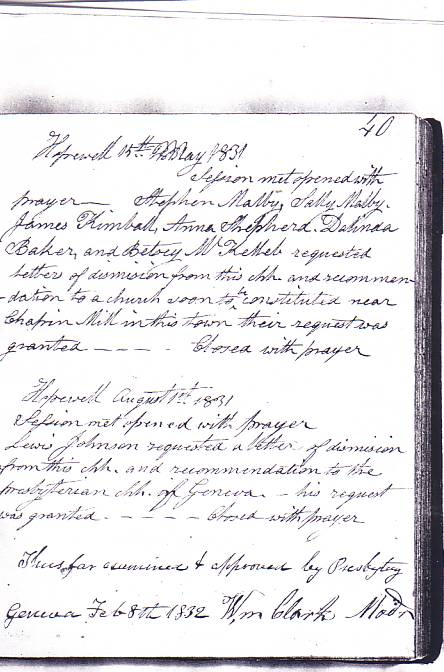 40
Hopewell 15th May 1831
Session met opened with
prayer — Stephen Maltby, Sally Maltby.
James Kimball, Anna Shepherd. Delinda
Baker, and Betsey Mc
requested
letters of dismision from this chh. and recommen-
-dation to a church soon to be constituted near
Chapin Mill in this town their request was
granted — — — Closed with prayer
Hopewell August 1st 1831
Session met opened with prayer
Lewis Johnson requested a letter of dismision
from this chh. and recommendation to the
presbyterian chh. of Geneva. — his request
was granted. — — — — Closed with prayer
Thus far examined & approved by Presbytery
Geneva Feb 8th 1832 Wm Clark Modr